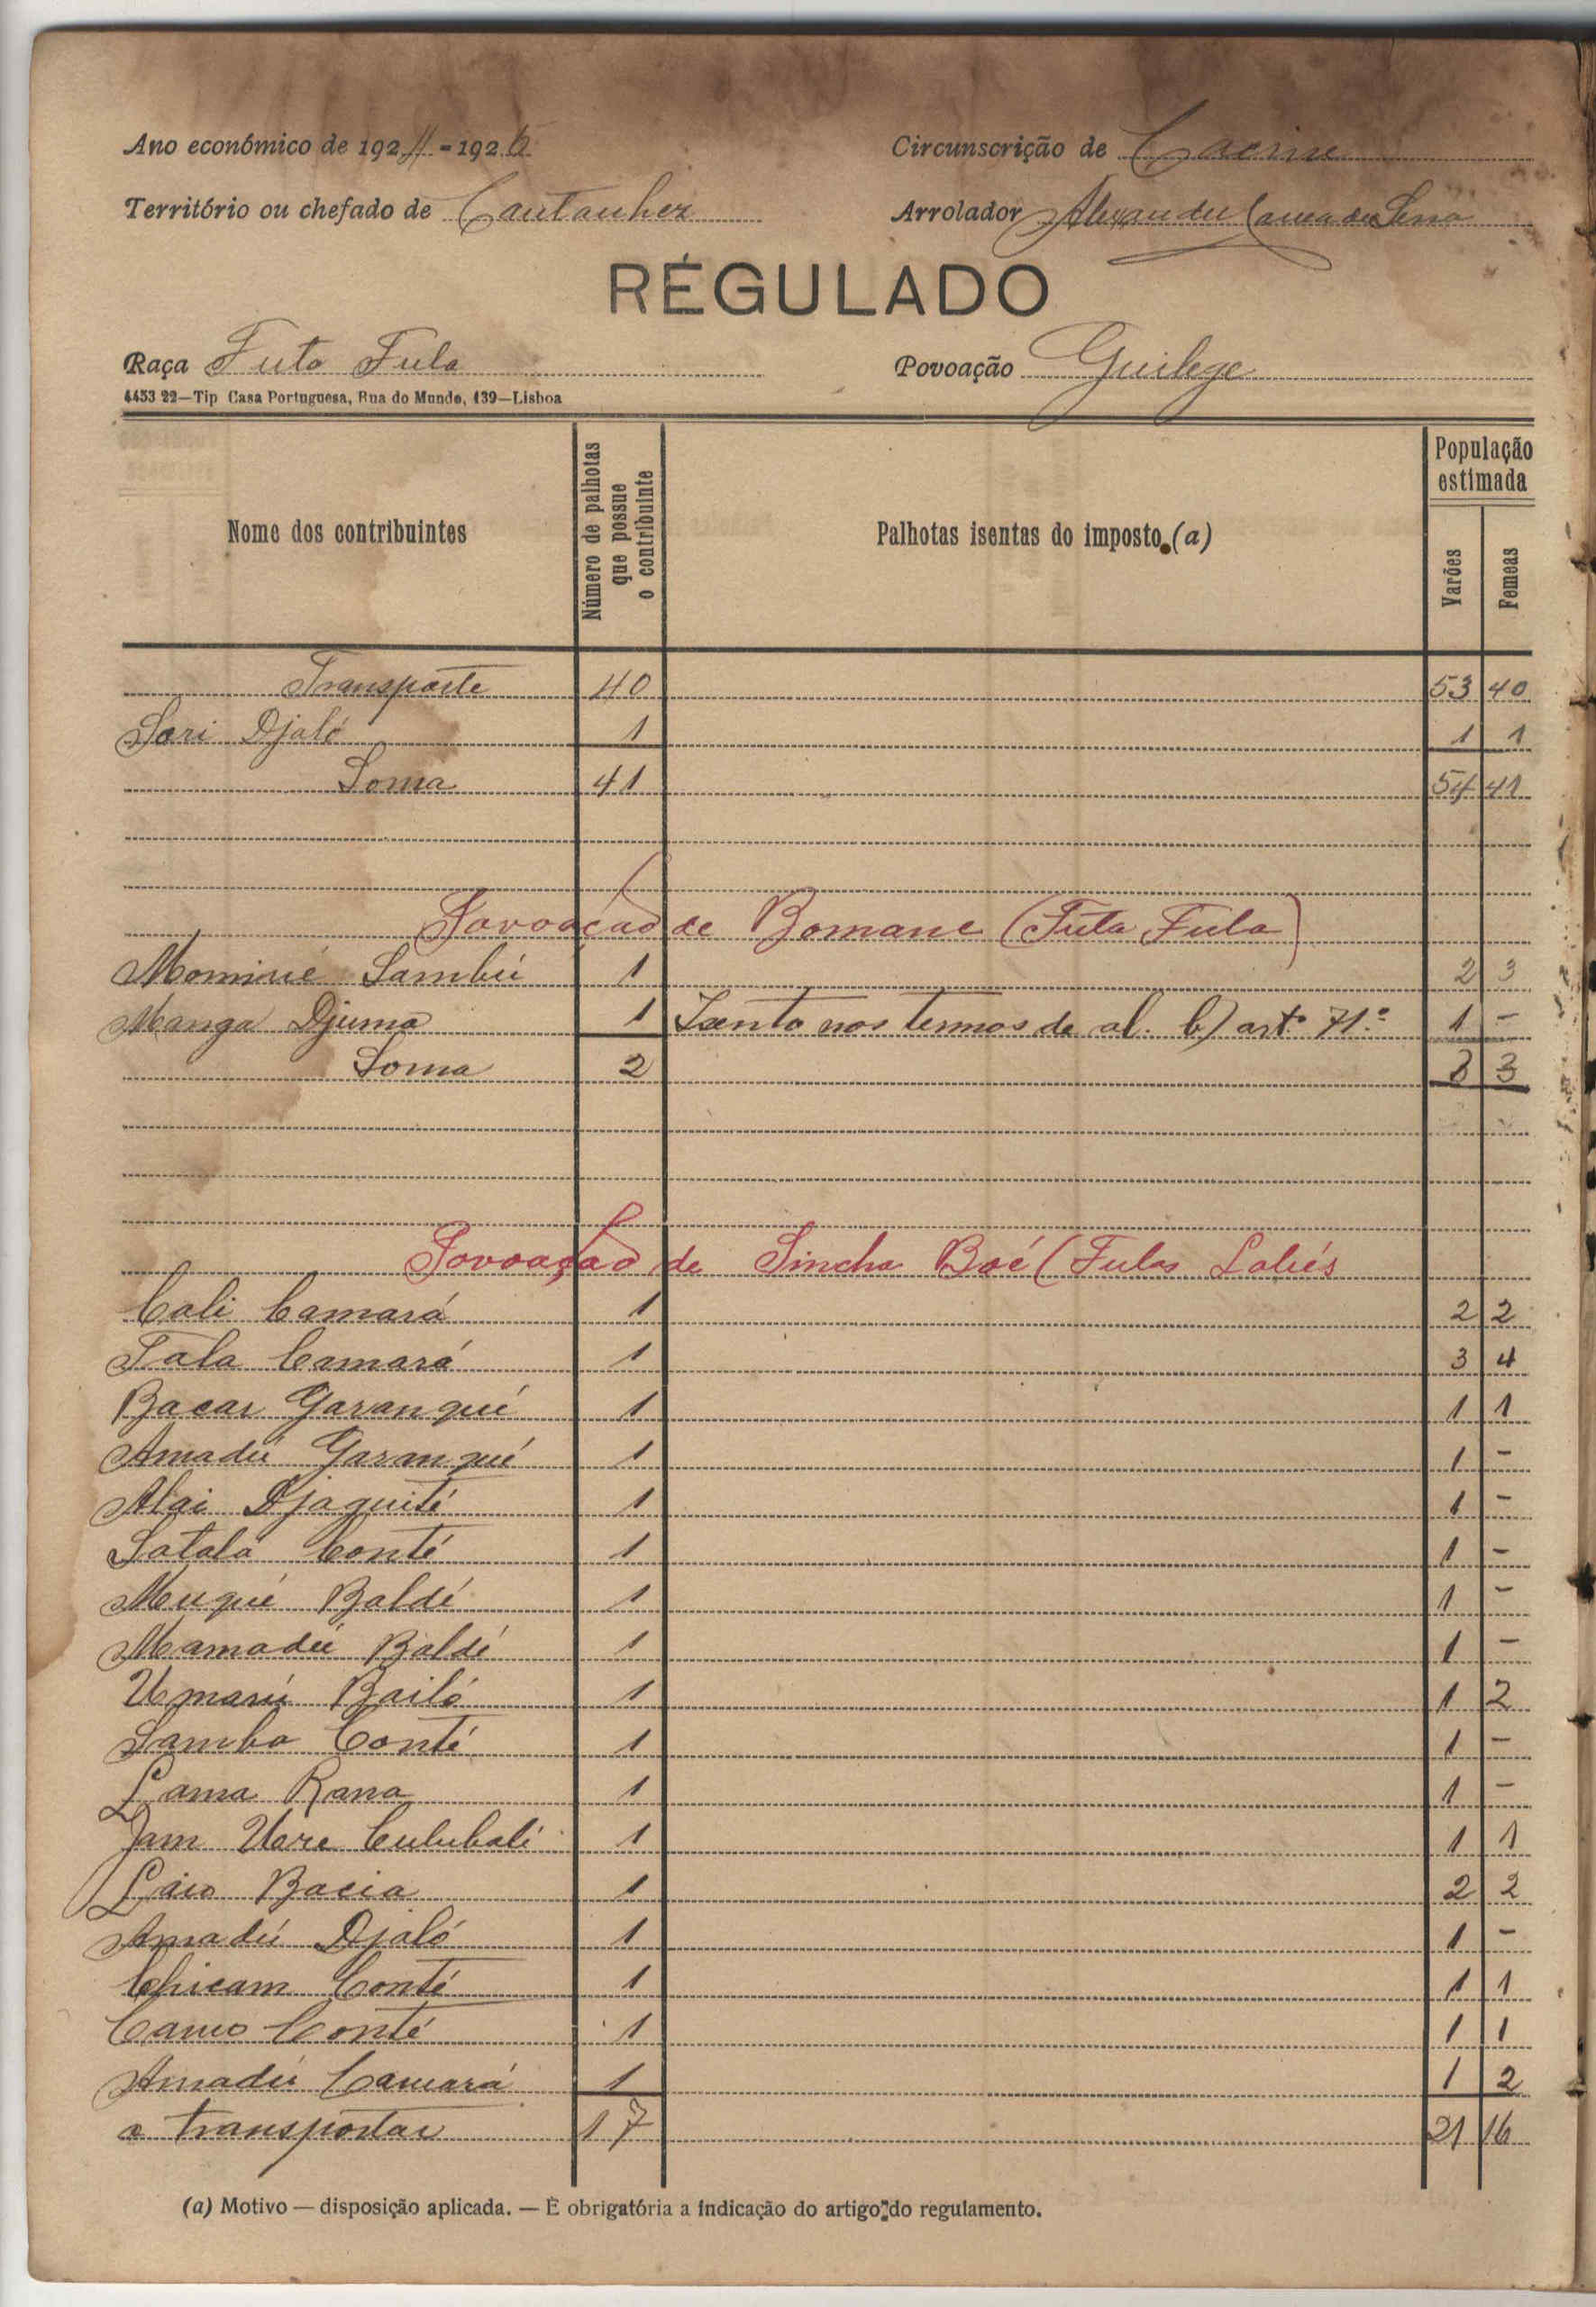 Ano económico de 192 - 192
Circunscrição de Cacine
Território ou chefado de Cantanhez
Arrolador Alexandre Correa de Sena
RÉGULADO
Raça Futo Fula
Povoação Guilege
4453 22—Tip Casa Portuguesa, Rua do Mundo, 139—Lisboa
Nome dos contribuintes Número de palhotas que possue o contribuinte Palhotas isentas do imposto (a) População estimada Varões Femeas
Transporte 40 53 40
Sori Djaló 1 1 1
Soma 41 54 41
Povoação de Bomane (Futa Fula)
Mominé Sambú 1 2 3
Manga Djuma 1 Isento nos termos da al. b) artº 71.º 1 -
Soma 2 3 3
Povoação de Sincha Boé (Fulas Labés
Cali Camará 1 2 2
Fala Camará 1 3 4
Bacar Garanqué 1 1 1
Amadú Garanqué 1 1 -
Alai Djaquité 1 1 -
Satalá Conté 1 1 -
Muqué Baldé 1 1 -
Mamadú Baldé 1 1 -
Umarú Bailó 1 1 2
Samba Conté 1 1 -
Lama Rana 1 1 -
Jam Uere Culubali 1 1 1
Laio Bacia 1 2 2
Amadú Djaló 1 1 -
Chicam Conté 1 1 1
Camo Conté 1 1 1
Amadú Camará 1 1 2
a transportar 17 21 16
(a) Motivo — disposição aplicada. — É obrigatória a indicação do artigo do regulamento.